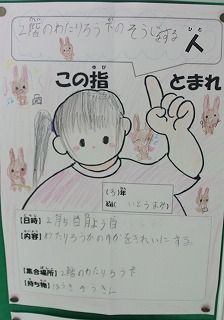 2階のわたりろう下のそうじをする人
ひと
ゆび
この指とまれ
(3)年
【日時】2月5日月よう日
【内容】わたりろうかのゆかをきれいにする。
【集合場所】2階のわたりろう下
【持ち物】ほうき